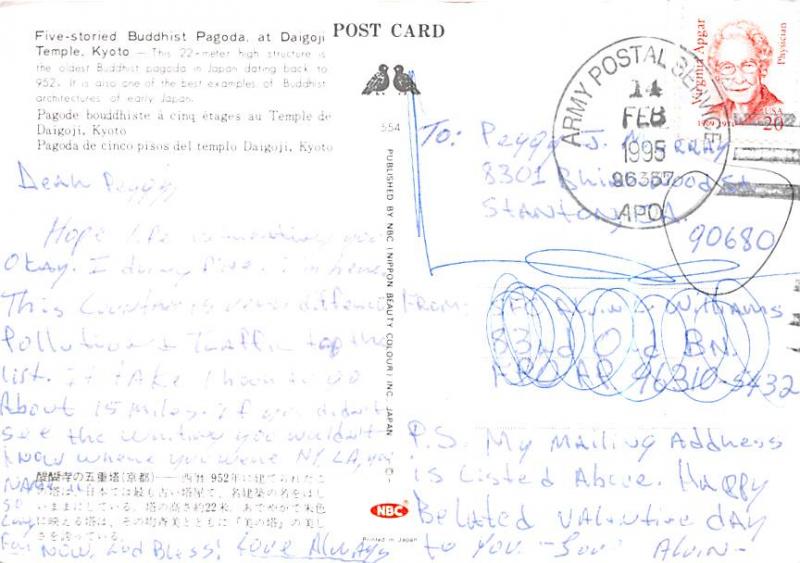 POST CARD
Five-storied Buddhist Pagoda, at Daigoji
Temple, Kyoto — This 22-meter high structure is
the oldest Buddhist pagoda in Japan dating back to
952. It is also one of the best examples of Buddhist
architectures of early Japan.
Pagode bouddhiste à cinq étages au Temple de
Daigoji, Kyoto
Pagoda de cinco pisos del templo Daigoji, Kyoto
Dear Peggy
Hope life is treating you
Okay. I doing fine.
This Country is very
Pollution & Traffic top the
list. It take 1 hour to go
About 15 miles. If you didn't
see the writing you wouldn't
know where you were NY, LA, you
NAME it
So
Long
For Now. God Bless! Love Always
醍醐寺の五重塔(京都)——西暦952年に建てられたこ
の塔は、日本では最も古い塔堂で、名建築の名をほし
いままにしている。塔の高さ約22米。あでやかで朱色
に映える塔は、その均斉美とともに「美の塔」の美し
さを誇っている。
554
PUBLISHED BY NBC (NIPPON BEAUTY COLOUR) INC. JAPAN
NBC
Printed in Japan
Virginia Apgar
Physician
USA
20
ARMY POSTAL SERVICE
14
FEB
1995
96337
APO
To: Peggy J. Murray
8301
Stanton, CA.
90680
From: SFC Alvin Williams
83rd Ord BN.
APO AP 96310-5432
P.S. My Mailing Address
is Listed Above. Happy
Belated Valentine day
to you - Alvin -